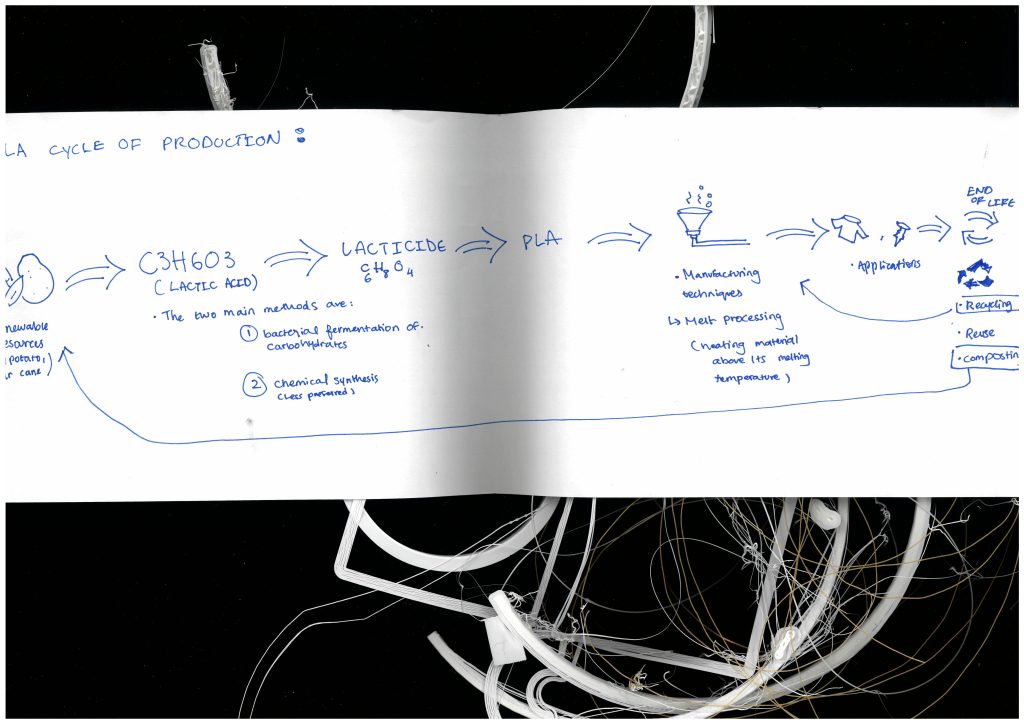 LA CYCLE OF PRODUCTION :
C3H6O3
(LACTIC ACID)
• The two main methods are:
1 bacterial fermentation of
carbohydrates
2 chemical synthesis
(less preferred)
newable
esources
potato,
r cane)
LACTICIDE
C6H8O4
PLA
• Manufacturing
techniques
↳ Melt processing
(heating material
above its melting
temperature)
• Applications
END
OF LIFE
• Recycling
• Reuse
• compostin